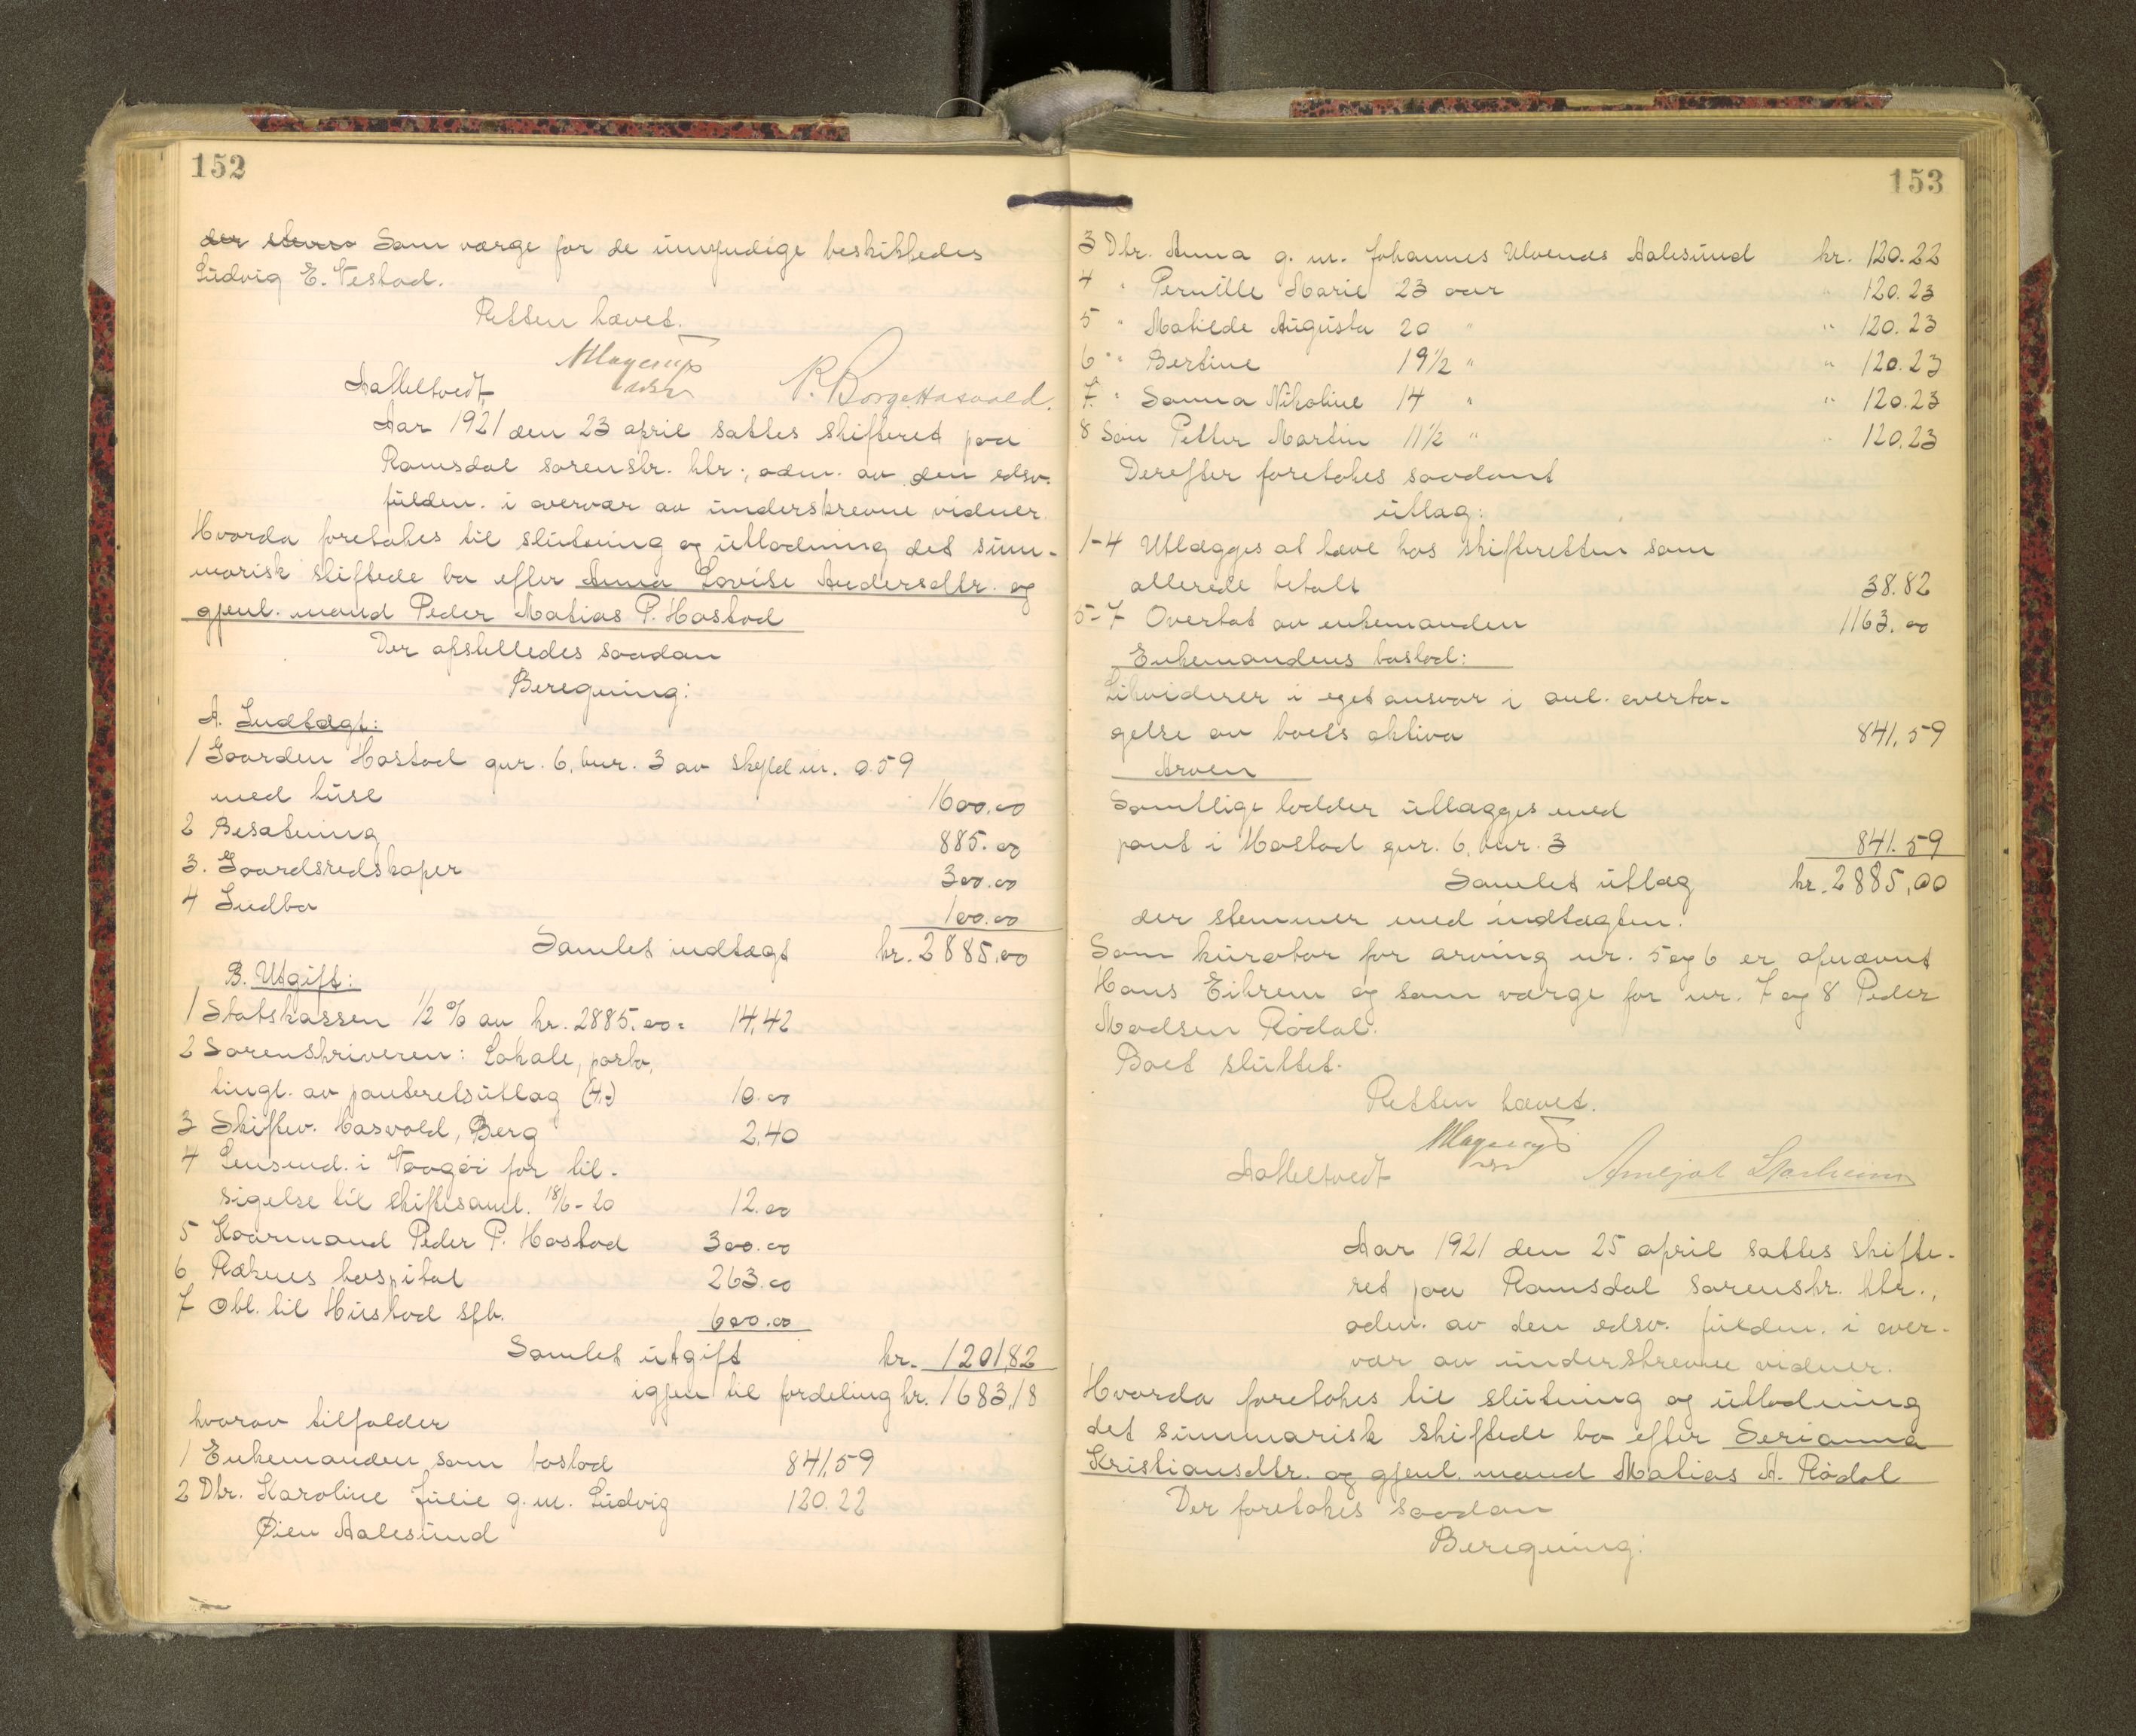 152
der stevne Som værge for de umyndige beskikkedes
Ludvig E. Nestad.
Retten hævet.
AaMeltvedt
R. Borge Hasvold.
Aar 1921 den 23 april sattes skifteret paa
Romsdal sorenskr. ktr., adm. av den edsv.
fuldm. i overvær av underskrevne vidner.
Hvorda foretokes til slutning og utlodning det sum-
marisk skiftede bo efter Anna Lovise Andersdtr. og
gjenl. mand Peder Matias P. Hostad
Der opstilledes saadan
Beregning:
A. Indtægt:
1 Gaarden Hostad gnr. 6, bnr. 3 av skyld m. 0.59
med huse 1600.00
2 Besætning 885.00
3. Gaardsredskaper 300.00
4 Indbo 100.00
Samlet indtægt kr. 2885.00
B. Utgift:
1 Statskassen 1/2 % av kr. 2885.00 = 14,42
2 Sorenskriveren: Lokale, porto,
tingl. av panteretsutlæg (4.-) 10.00
3 Skiftev. Hasvold, Berg 2,40
4 Lensmd. i Vaagøi for til-
sigelse til skiftesaml. 18/6 - 20 12.00
5 Kaarmand Peder P. Hostad 300.00
6 Reknes hospital 263.00
7 Obl. til Hustad spb. 600.00
Samlet utgift kr. 1201,82
igjen til fordeling kr. 1683,18
hvorav tilfalder
1 Enkemanden som boslod 841,59
2 Dtr. Karoline Julie g. m. Ludvig 120.22
Øien Aalesund
153
3 Dtr. Anna g. m. Johannes Ulvenes Aalesund kr. 120.22
4 " Pernille Marie 23 aar " 120.23
5 " Matilde Augusta 20 " " 120.23
6 " Bertine 19 1/2 " " 120.23
7. " Sanna Nikoline 14 " " 120.23
8 Søn Petter Martin 11 1/2 " " 120.23
Derefter foretokes saadant
utlæg:
1-4 Utlægges at hæve hos skifteretten som
allerede betalt 38.82
5-7 Overtat av enkemanden 1163.00
Enkemandens boslod:
Likviderer i eget ansvar i anl. overta-
gelse av boets aktiva 841,59
Arven
Samtlige lodder utlægges med
pant i Hostad gnr. 6, bnr. 3 841.59
Samlet utlæg kr. 2885,00
der stemmer med indtægten.
Som kurator for arving nr. 5 og 6 er opnævnt
Hans Eikrem og som værge for nr. 7 og 8 Peder
Madsen Rødal.
Boet sluttet.
Retten hævet.
AaMeltvedt
Aar 1921 den 25 april sattes skifte-
ret paa Romsdal sorenskr. ktr.,
adm. av den edsv. fuldm. i over-
vær av underskrevne vidner.
Hvorda foretokes til slutning og utlodning
det summarisk skiftede bo efter Serianna
Kristiansdtr. og gjenl. mand Matias A. Rødal
Der foretokes saadan
Beregning: